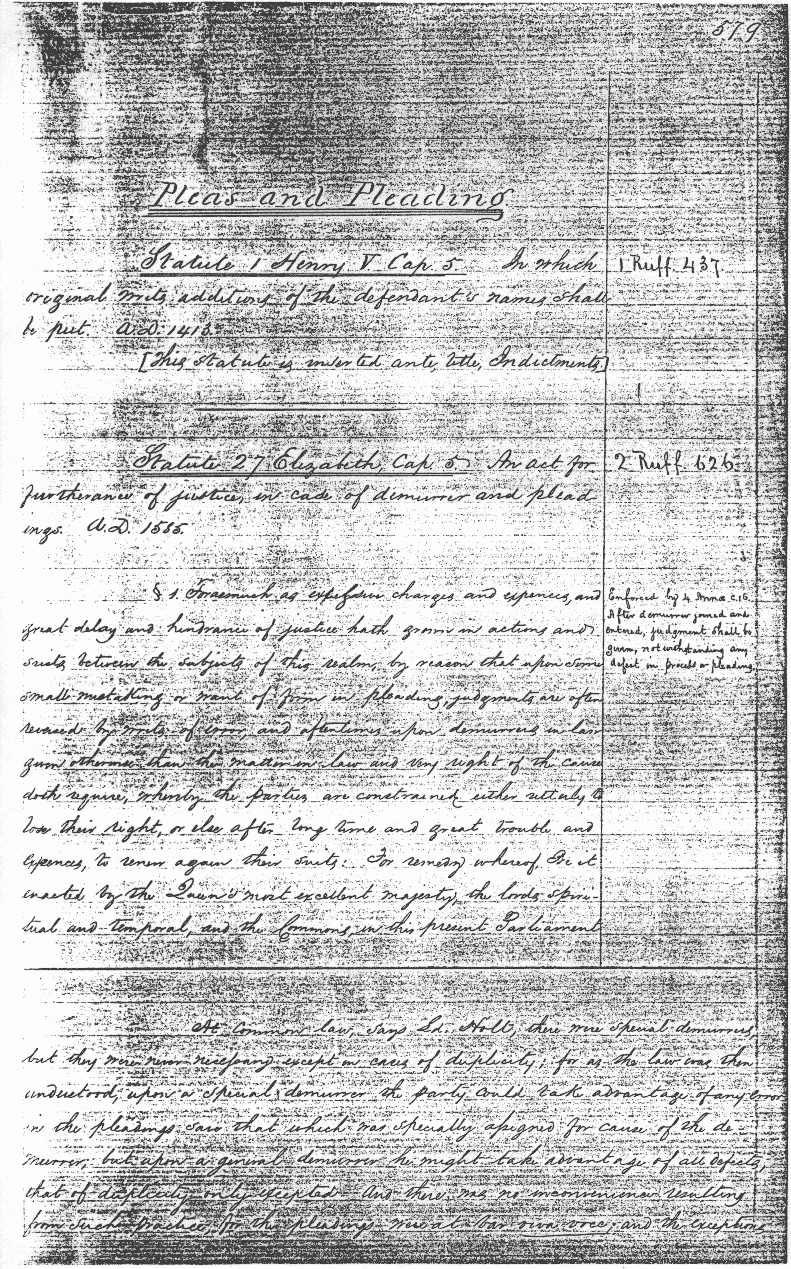 579
Pleas and Pleading
Statute 1 Henry V. Cap. 5. In which
1 Ruff. 437
original writs additions of the defendant's names shall
be put. A.D. 1413.
[This statute is inserted ante, title, Indictments.]
Statute 27 Elizabeth, Cap. 5. An act for
2 Ruff. 626.
furtherance of justice, in case of demurrer and plead-
ings. A.D. 1585.
§ 1. Forasmuch as excessive charges and expences, and
great delay and hindrance of justice hath grown in actions and
suits between the subjects of this realm, by reason that upon some
small mistaking or want of form in pleading, judgments are often
reversed by writs of error, and oftentimes upon demurrers in law
given otherwise than the matter in law and very right of the cause
doth require, whereby the parties are constrained either utterly to
lose their right, or else after long time and great trouble and
expences, to renew again their suits: For remedy whereof, Be it
enacted by the Queen's most excellent majesty, the lords spiri-
tual and temporal, and the Commons, in this present Parliament
Enforced by 4 Anne c. 16.
After demurrer joined and
entered, judgment shall be
given, notwithstanding any
defect in process or pleading.
At Common law, says Ld. Holt, there were special demurrers,
but they were never necessary except in cases of duplicity; for as the law was then
understood, upon a special demurrer the party could take advantage of any error
in the pleadings save that which was specially assigned for cause of the de-
murrer; but upon a general demurrer he might take advantage of all defects,
that of duplicity only excepted. And there was no inconvenience resulting
from such practice, for the pleadings were at bar viva voce, and the exceptions